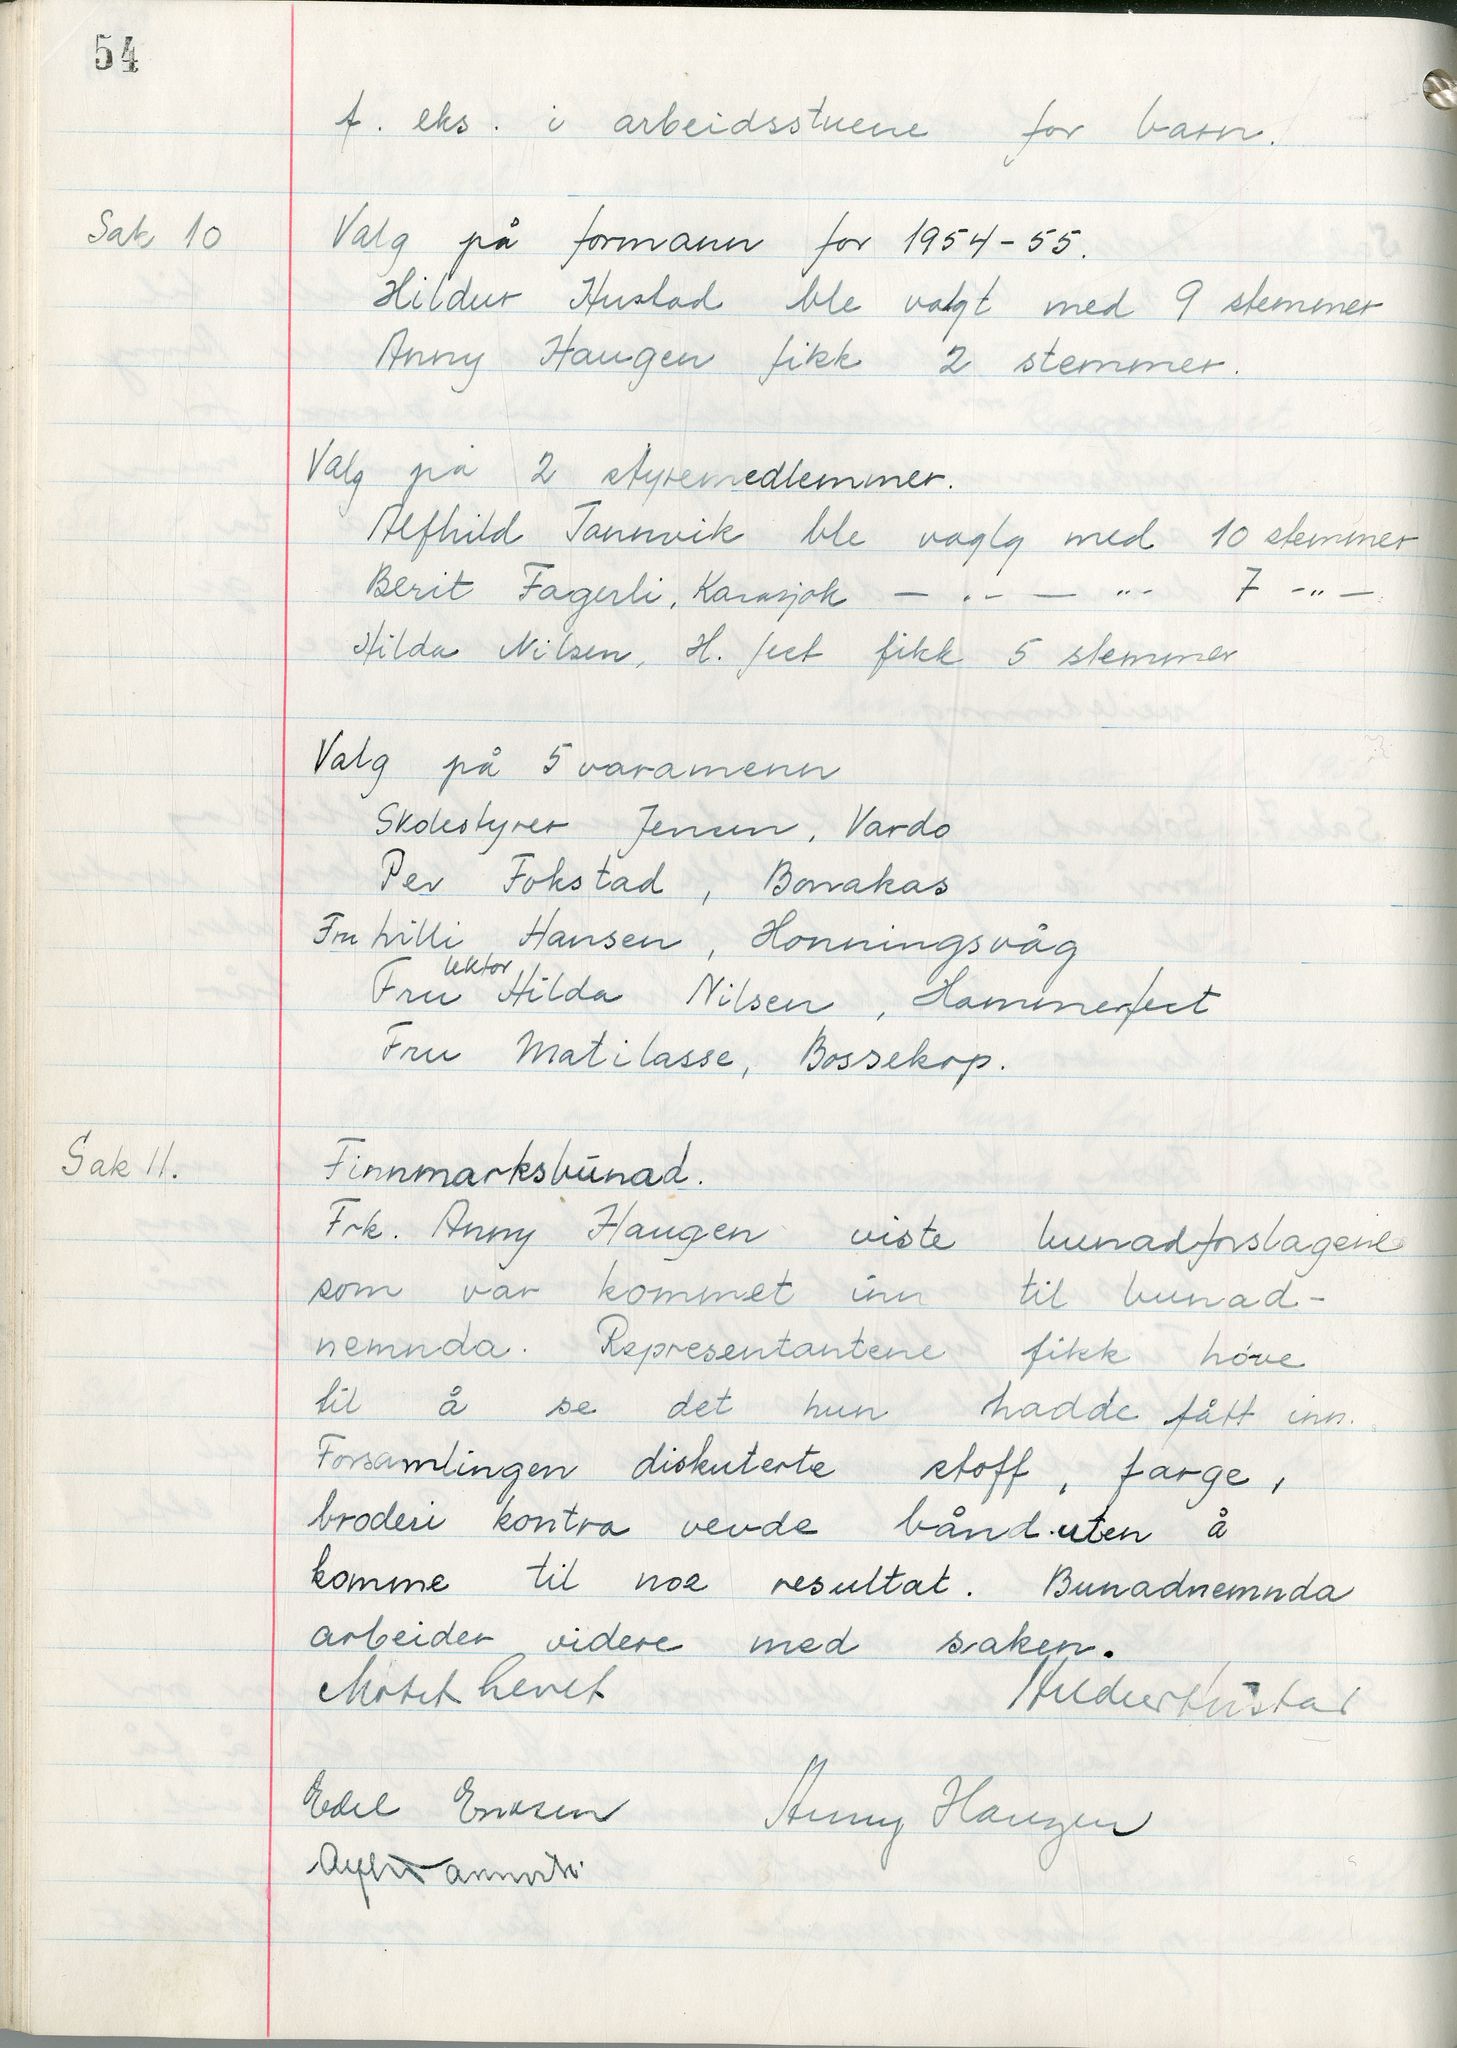 54
f. eks. i arbeidsstuene for barn.
Sak 10 Valg på formann for 1954-55.
Hildur Hustad ble valgt med 9 stemmer
Anny Haugen fikk 2 stemmer.
Valg på 2 styremedlemmer.
Alfhild Tannvik ble vaglg med 10 stemmer
Berit Fagerli, Karasjok — „ — — „ — 7 — „ —
Hilda Nilsen, H. fest fikk 5 stemmer
Valg på 5 varamenn
Skolestyrer Jensen, Vardø
Per Fokstad, Bonakas
Fru Lilli Hansen, Honningsvåg
Fru lektor Hilda Nilsen, Hammerfest
Fru Matilasse, Bossekop.
Sak 11. Finnmarksbunad.
Frk. Anny Haugen viste bunadforslagene
som var kommet inn til bunad-
nemnda. Representantene fikk høve
til å se det hun hadde fått inn.
Forsamlingen diskuterte stoff, farge,
broderi kontra vevde bånd uten å
komme til noe resultat. Bunadnemnda
arbeider videre med saken.
Møtet hevet Hildur Hustad
Edel Eriksen Anny Haugen